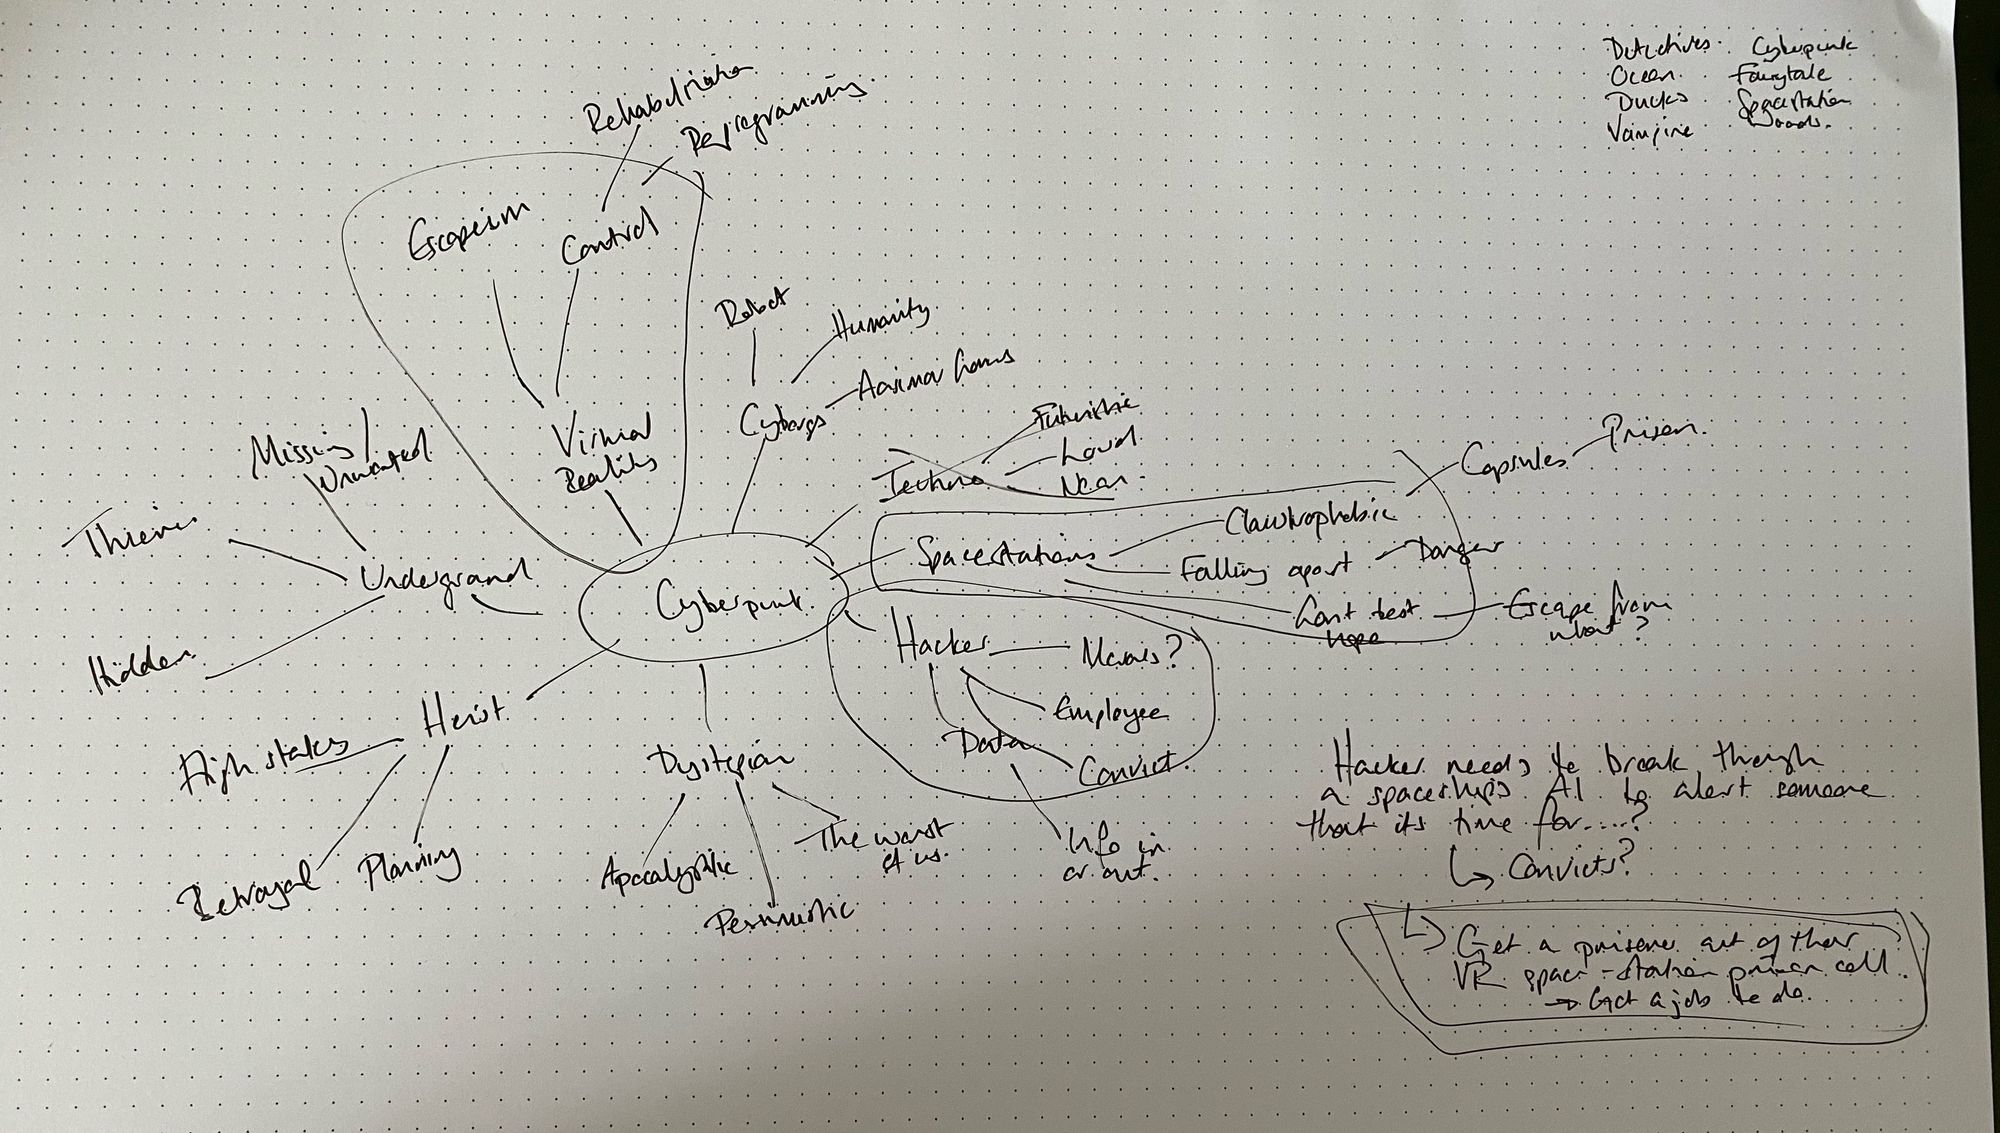 Detectives. Cyberpunk
Ocean. Fairytale
Ducks Spacestation
Vampire Woods.
Rehabilitation
Reprogramming.
Escapeism
Control
Virtual
Reality
Robot
Humanity
Cyborgs
Asimov laws
Techno
Futuristic
Loud.
Neon.
Missing /
Unwanted
Thieves
Underground
Hidden
Spacestations
Claustrophobic
Capsules
Prison.
Falling apart
Danger
Last best
hope
Escape from
what?
Cyberpunk.
Hacker
Morals?
Employee
Data
Convict.
Info in
or out.
Heist
High stakes
Betrayal
Planning
Dystopian
Apocalyptic
Pessimistic
The worst
of us.
Hacker needs to break through
a spaceships AI to alert someone
that its time for.....?
↳ Convicts?
↳ Get a prisoner out of their
VR space-station prison cell.
→ Got a job to do.